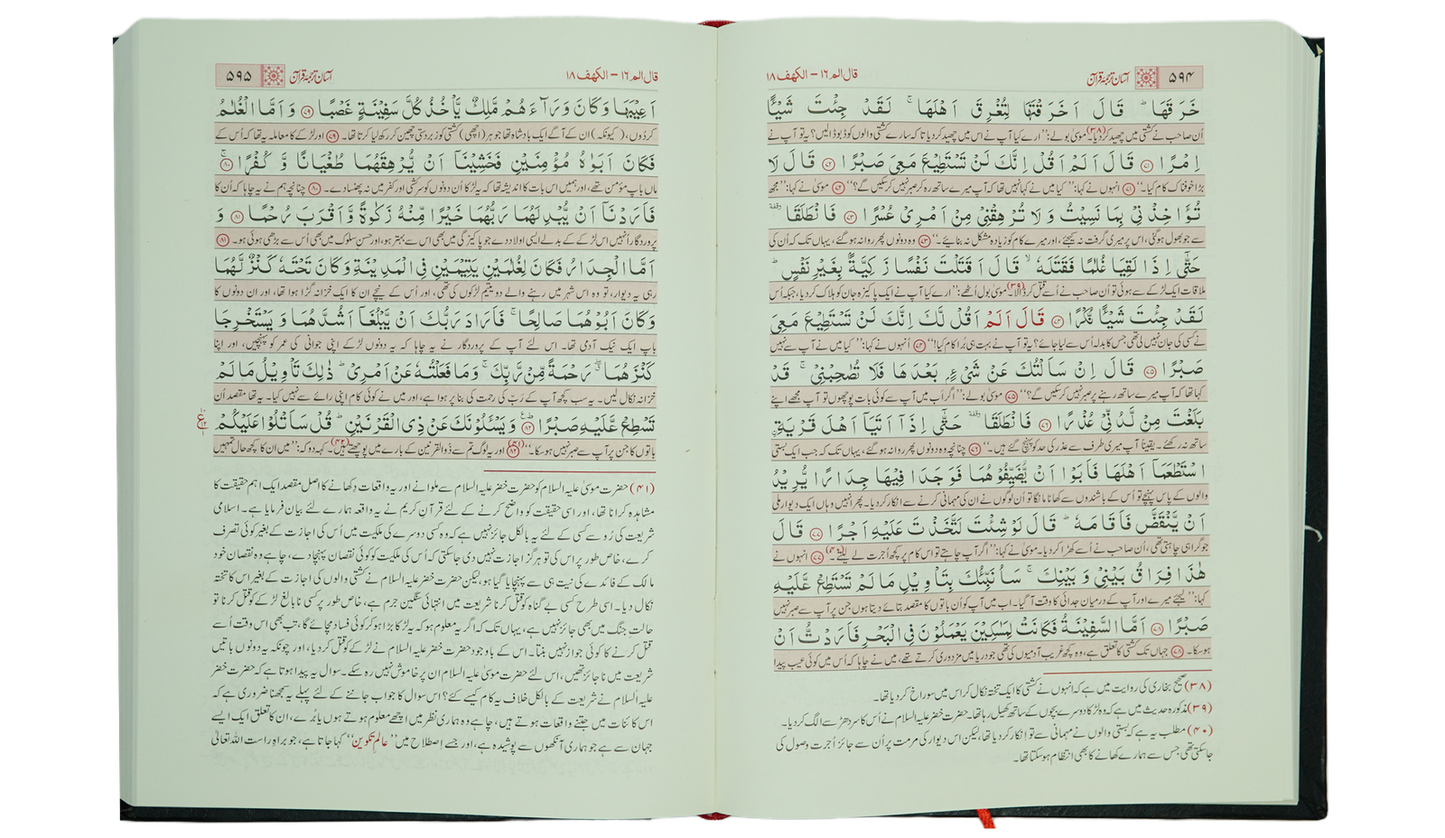 ۵۹۴
آسان ترجمۂ قرآن
قال الم ۱۶ – الکھف ۱۸
خَرَقَهَا ؕ قَالَ اَخَرَقْتَهَا لِتُغْرِقَ اَهْلَهَا ۚ لَقَدْ جِئْتَ شَيْـًٔا
اُن صاحب نے کشتی میں چھید کردیا۔(۳۸) موسیٰ بولے: ”ارے کیا آپ نے اس میں چھید کردیا تاکہ سارے کشتی والوں کو ڈبو ڈالیں؟ یہ تو آپ نے
اِمْرًا ۝۷۱ قَالَ اَلَمْ اَقُلْ اِنَّكَ لَنْ تَسْتَطِيْعَ مَعِيَ صَبْرًا ۝۷۲ قَالَ لَا
بڑا خوفناک کام کیا۔“ ۝۷۱ انہوں نے کہا: ”کیا میں نے کہا نہیں تھا کہ آپ میرے ساتھ رہ کر صبر نہیں کرسکیں گے؟“ ۝۷۲ موسیٰ نے کہا: ”مجھ
تُؤَاخِذْنِيْ بِمَا نَسِيْتُ وَلَا تُرْهِقْنِيْ مِنْ اَمْرِيْ عُسْرًا ۝۷۳ فَانْطَلَقَا ۥ وقفة
سے جو بھول ہوگئی، اس پر میری گرفت نہ کیجئے، اور میرے کام کو زیادہ مشکل نہ بنایئے۔“ ۝۷۳ وہ دونوں پھر روانہ ہوگئے، یہاں تک کہ اُن کی
حَتّٰٓى اِذَا لَقِيَا غُلٰمًا فَقَتَلَهٗ ۙ قَالَ اَقَتَلْتَ نَفْسًا زَكِيَّةًۢ بِغَيْرِ نَفْسٍ ؕ
ملاقات ایک لڑکے سے ہوئی تو اُن صاحب نے اُسے قتل کر ڈالا۔(۳۹) موسیٰ بول اُٹھے: ”ارے کیا آپ نے ایک پاکیزہ جان کو ہلاک کردیا، جبکہ اُس
لَقَدْ جِئْتَ شَيْـًٔا نُّكْرًا ۝۷۴ قَالَ اَلَمْ اَقُلْ لَّكَ اِنَّكَ لَنْ تَسْتَطِيْعَ مَعِيَ
نے کسی کی جان نہیں لی تھی جس کا بدلہ اُس سے لیا جائے؟ یہ تو آپ نے بہت ہی بُرا کام کیا!“ ۝۷۴ اُنہوں نے کہا: ”کیا میں نے آپ سے نہیں
صَبْرًا ۝۷۵ قَالَ اِنْ سَاَلْتُكَ عَنْ شَيْءٍۭ بَعْدَهَا فَلَا تُصٰحِبْنِيْ ۚ قَدْ
کہا تھا کہ آپ میرے ساتھ رہنے پر صبر نہیں کرسکیں گے؟“ ۝۷۵ موسیٰ بولے: ”اگر اب میں آپ سے کوئی بات پوچھوں تو آپ مجھے اپنے
بَلَغْتَ مِنْ لَّدُنِّيْ عُذْرًا ۝۷۶ فَانْطَلَقَا ۥ وقفة حَتّٰٓى اِذَآ اَتَيَآ اَهْلَ قَرْيَةِۨ
ساتھ نہ رکھئے۔ یقیناً آپ میری طرف سے عذر کی حد کو پہنچ گئے ہیں۔“ ۝۷۶ چنانچہ وہ دونوں پھر روانہ ہوگئے، یہاں تک کہ جب ایک بستی
اسْتَطْعَمَآ اَهْلَهَا فَاَبَوْا اَنْ يُّضَيِّفُوْهُمَا فَوَجَدَا فِيْهَا جِدَارًا يُّرِيْدُ
والوں کے پاس پہنچے تو اُس کے باشندوں سے کھانا مانگا تو اُن لوگوں نے ان کی مہمانی کرنے سے انکار کردیا۔ پھر انہیں وہاں ایک دیوار ملی
اَنْ يَّنْقَضَّ فَاَقَامَهٗ ؕ قَالَ لَوْ شِئْتَ لَتَّخَذْتَ عَلَيْهِ اَجْرًا ۝۷۷ قَالَ
جو گرا ہی چاہتی تھی، ان صاحب نے اُسے کھڑا کردیا۔ موسیٰ نے کہا: ”اگر آپ چاہتے تو اس کام پر کچھ اُجرت لے لیتے۔“(۴۰) ۝۷۷ انہوں نے
هٰذَا فِرَاقُ بَيْنِيْ وَبَيْنِكَ ۚ سَاُنَبِّئُكَ بِتَاْوِيْلِ مَا لَمْ تَسْتَطِعْ عَّلَيْهِ
کہا: ”لیجئے میرے اور آپ کے درمیان جدائی کا وقت آگیا۔ اب میں آپ کو اُن باتوں کا مقصد بتائے دیتا ہوں جن پر آپ سے صبر نہیں
صَبْرًا ۝۷۸ اَمَّا السَّفِيْنَةُ فَكَانَتْ لِمَسٰكِيْنَ يَعْمَلُوْنَ فِي الْبَحْرِ فَاَرَدْتُّ اَنْ
ہوسکا۔ ۝۷۸ جہاں تک کشتی کا تعلق ہے، وہ کچھ غریب آدمیوں کی تھی جو دریا میں مزدوری کرتے تھے، میں نے چاہا کہ اُس میں کوئی عیب پیدا
(۳۸) صحیح بخاری کی روایت میں ہے کہ انہوں نے کشتی کا ایک تختہ نکال کر اس میں سوراخ کردیا تھا۔
(۳۹) مذکورہ حدیث میں ہے کہ وہ لڑکا دوسرے بچوں کے ساتھ کھیل رہا تھا۔ حضرت خضر علیہ السلام نے اُس کا سر دھڑ سے الگ کردیا۔
(۴۰) مطلب یہ ہے کہ بستی والوں نے مہمانی سے تو انکار کردیا تھا، لیکن اس دیوار کی مرمت پر اُن سے جائز اُجرت وصول کی
جاسکتی تھی جس سے ہمارے کھانے کا بھی انتظام ہوسکتا تھا۔
قال الم ۱۶ – الکھف ۱۸
آسان ترجمۂ قرآن
۵۹۵
اَعِيْبَهَا وَكَانَ وَرَآءَهُمْ مَّلِكٌ يَّاْخُذُ كُلَّ سَفِيْنَةٍ غَصْبًا ۝۷۹ وَاَمَّا الْغُلٰمُ
کردوں، (کیونکہ) ان کے آگے ایک بادشاہ تھا جو ہر (اچھی) کشتی کو زبردستی چھین کر رکھ لیا کرتا تھا۔ ۝۷۹ اور لڑکے کا معاملہ یہ تھا کہ اُس کے
فَكَانَ اَبَوٰهُ مُؤْمِنَيْنِ فَخَشِيْنَآ اَنْ يُّرْهِقَهُمَا طُغْيَانًا وَّكُفْرًا ۝۸۰ ۚ
ماں باپ مؤمن تھے، اور ہمیں اس بات کا اندیشہ تھا کہ یہ لڑکا اُن دونوں کو سرکشی اور کفر میں نہ پھنسادے۔ ۝۸۰ چنانچہ ہم نے یہ چاہا کہ اُن کا
فَاَرَدْنَآ اَنْ يُّبْدِلَهُمَا رَبُّهُمَا خَيْرًا مِّنْهُ زَكٰوةً وَّاَقْرَبَ رُحْمًا ۝۸۱ وَ
پروردگار اُنہیں اس لڑکے کے بدلے ایسی اولاد دے جو پاکیزگی میں بھی اس سے بہتر ہو، اور حسنِ سلوک میں بھی اُس سے بڑھی ہوئی ہو۔ ۝۸۱
اَمَّا الْجِدَارُ فَكَانَ لِغُلٰمَيْنِ يَتِيْمَيْنِ فِي الْمَدِيْنَةِ وَكَانَ تَحْتَهٗ كَنْزٌ لَّهُمَا
رہی یہ دیوار، تو وہ اس شہر میں رہنے والے دو یتیم لڑکوں کی تھی، اور اُس کے نیچے ان کا ایک خزانہ گڑا ہوا تھا، اور ان دونوں کا
وَكَانَ اَبُوْهُمَا صَالِحًا ۚ فَاَرَادَ رَبُّكَ اَنْ يَّبْلُغَآ اَشُدَّهُمَا وَيَسْتَخْرِجَا
باپ ایک نیک آدمی تھا۔ اس لئے آپ کے پروردگار نے یہ چاہا کہ یہ دونوں لڑکے اپنی جوانی کی عمر کو پہنچیں، اور اپنا
كَنْزَهُمَا ۖۗ رَحْمَةً مِّنْ رَّبِّكَ ۚ وَمَا فَعَلْتُهٗ عَنْ اَمْرِيْ ؕ ذٰلِكَ تَاْوِيْلُ مَا لَمْ
خزانہ نکال لیں۔ یہ سب کچھ آپ کے رَبّ کی رحمت کی بنا پر ہوا ہے، اور میں نے کوئی کام اپنی رائے سے نہیں کیا۔ یہ تھا مقصد اُن
تَسْطِعْ عَّلَيْهِ صَبْرًا ۝۸۲ ؕ وَيَسْـَٔلُوْنَكَ عَنْ ذِي الْقَرْنَيْنِ ؕ قُلْ سَاَتْلُوْا عَلَيْكُمْ
باتوں کا جن پر آپ سے صبر نہیں ہوسکا۔“(۴۱) ۝۸۲ اور یہ لوگ تم سے ذُوالقرنین کے بارے میں پوچھتے ہیں۔(۴۲) کہہ دو کہ: ”میں ان کا کچھ حال تمہیں
(۴۱) حضرت موسیٰ علیہ السلام کو حضرت خضر علیہ السلام سے ملوانے اور یہ واقعات دِکھانے کا اصل مقصد ایک اہم حقیقت کا
مشاہدہ کرانا تھا، اور اسی حقیقت کو واضح کرنے کے لئے قرآنِ کریم نے یہ واقعہ ہمارے لئے بیان فرمایا ہے۔ اسلامی
شریعت کی رُو سے کسی کے لئے یہ بالکل جائز نہیں ہے کہ وہ کسی دوسرے کی ملکیت میں اُس کی اجازت کے بغیر کوئی تصرف
کرے، خاص طور پر اس کی تو ہرگز اجازت نہیں دی جاسکتی کہ اُس کی ملکیت کو کوئی نقصان پہنچادے، چاہے وہ نقصان خود
مالک کے فائدے کی نیت ہی سے پہنچایا گیا ہو، لیکن حضرت خضر علیہ السلام نے کشتی والوں کی اجازت کے بغیر اس کا تختہ
نکال دیا۔ اسی طرح کسی بے گناہ کو قتل کرنا شریعت میں انتہائی سنگین جرم ہے، خاص طور پر کسی نابالغ لڑکے کو قتل کرنا تو
حالتِ جنگ میں بھی جائز نہیں ہے، یہاں تک کہ اگر یہ معلوم ہو کہ یہ لڑکا بڑا ہو کر کوئی فساد مچائے گا، تب بھی اس وقت اُسے
قتل کرنے کا کوئی جواز نہیں بنتا۔ اس کے باوجود حضرت خضر علیہ السلام نے لڑکے کو قتل کردیا، اور چونکہ یہ دونوں باتیں
شریعت میں ناجائز تھیں، اس لئے حضرت موسیٰ علیہ السلام ان پر خاموش نہیں رہ سکے۔ سوال یہ پیدا ہوتا ہے کہ حضرت خضر
علیہ السلام نے شریعت کے بالکل خلاف یہ کام کیسے کئے؟ اس سوال کا جواب جاننے کے لئے پہلے یہ سمجھنا ضروری ہے کہ
اس کائنات میں جتنے واقعات ہوتے ہیں، چاہے وہ ہماری نظر میں اچھے معلوم ہوتے ہوں یا بُرے، ان کا تعلق ایک ایسے
جہان سے ہے جو ہماری آنکھوں سے پوشیدہ ہے، اور جسے اِصطلاح میں ”عالَمِ تکوین“ کہا جاتا ہے، جو براہِ راست اللہ تعالیٰ